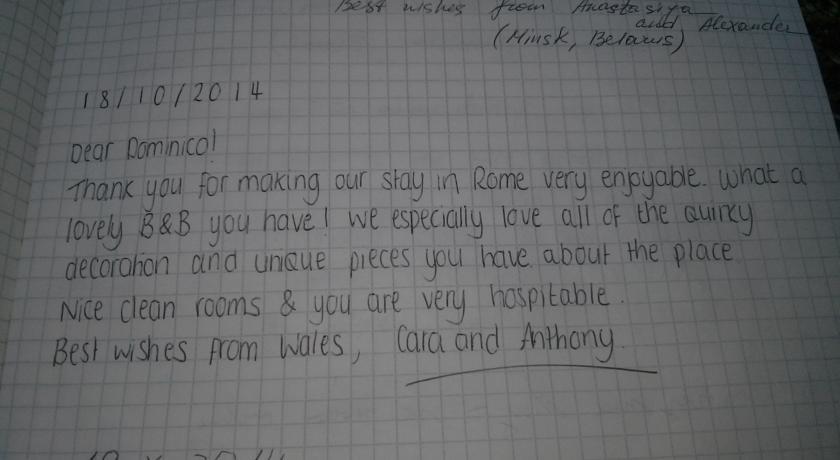 Best wishes from Anastasiya
and Alexander
(Minsk, Belarus)
18/10/2014
Dear Dominico!
Thank you for making our stay in Rome very enjoyable. What a
lovely B&B you have! We especially love all of the quirky
decoration and unique pieces you have about the place
Nice clean rooms & you are very hospitable.
Best wishes from Wales, Cara and Anthony.